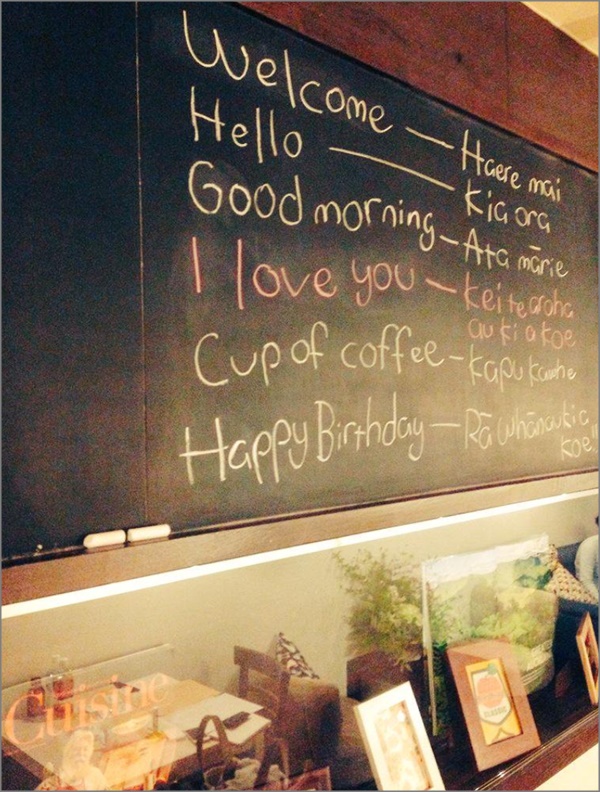 Welcome — Haere mai
Hello — Kia ora
Good morning — Ata mārie
I love you — kei te aroha
au ki a koe
Cup of coffee — Kapu kawhe
Happy Birthday — Rā whānau ki a
koe"
Cuisine